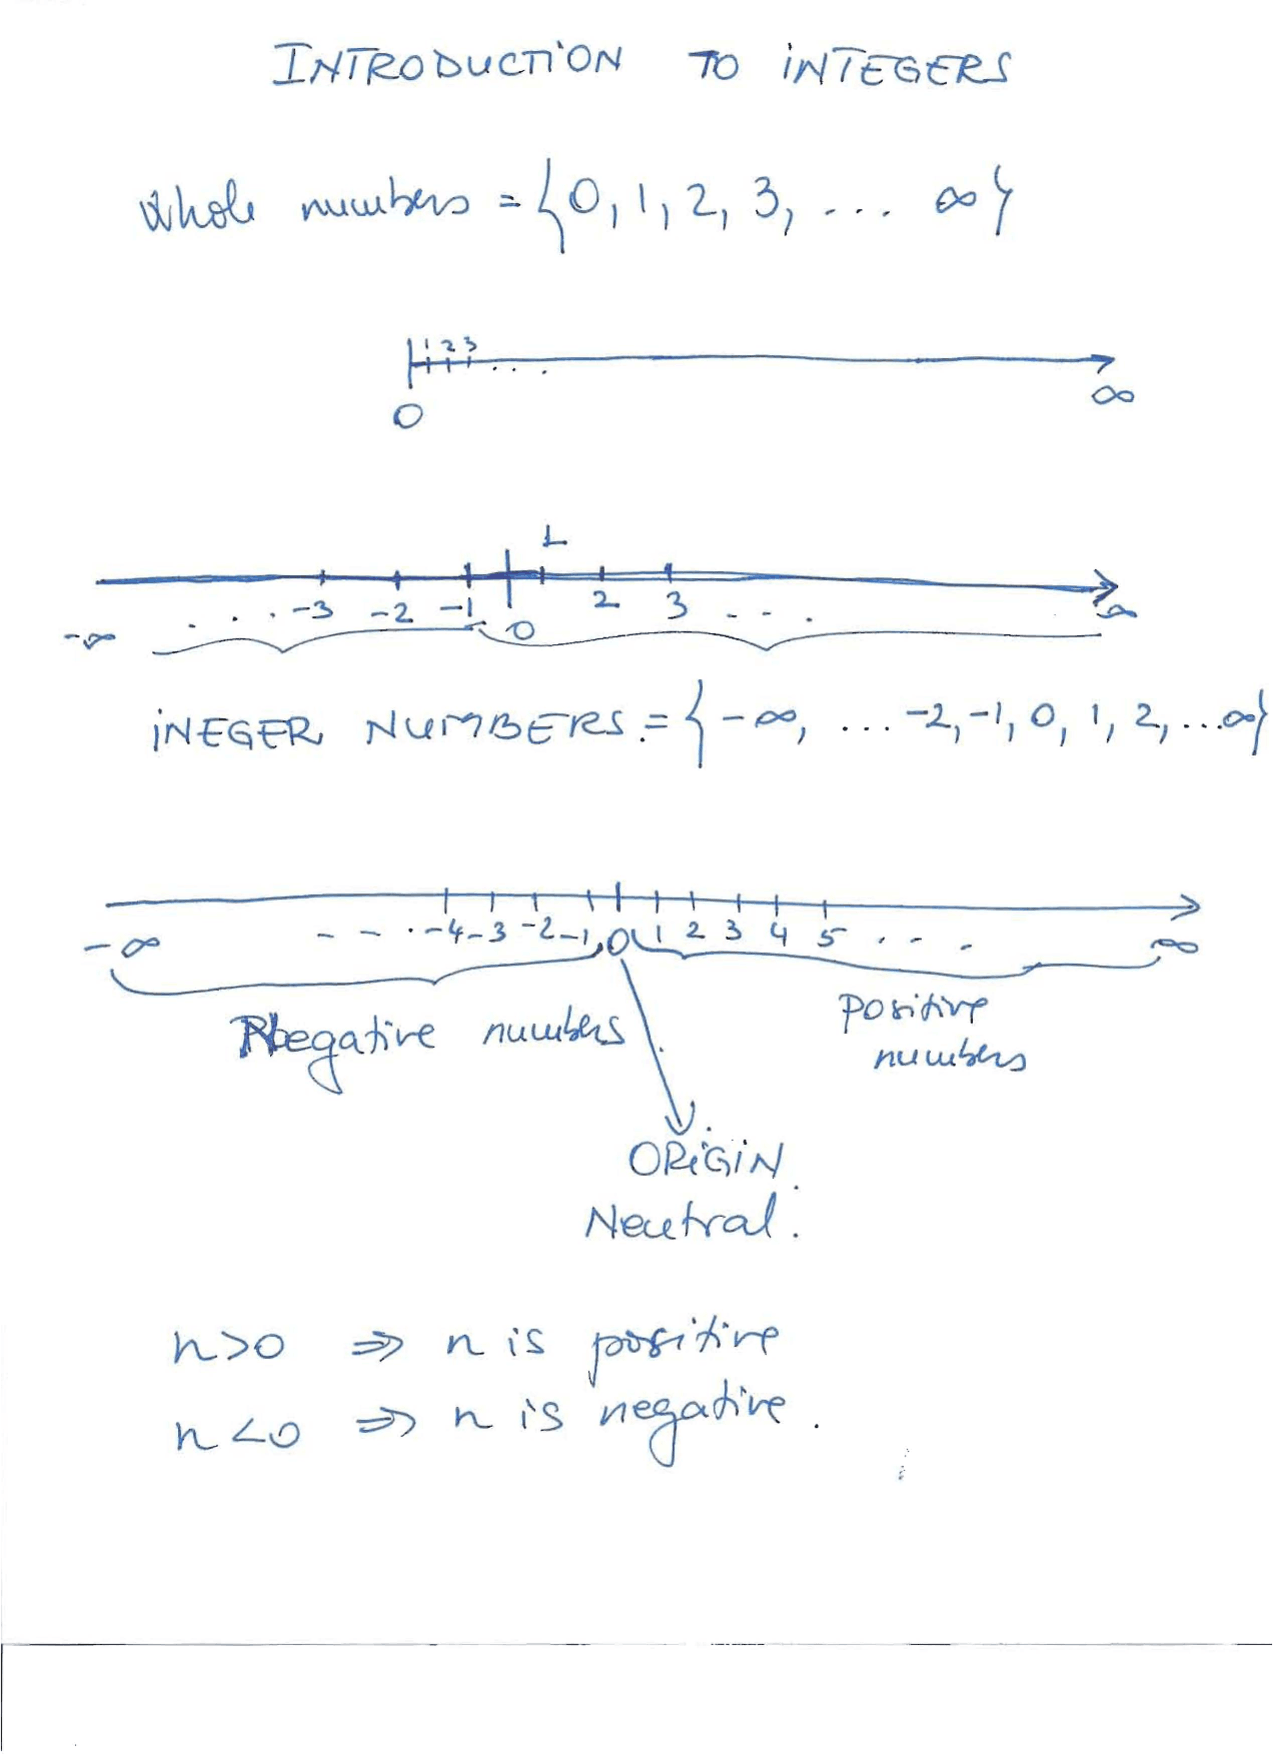 INTRODUCTION TO INTEGERS
Whole numbers = {0, 1, 2, 3, ... ∞}
1 2 3 ...
0 ∞
1
-∞ ... -3 -2 -1 0 2 3 ... ∞
INEGER NUMBERS = {-∞, ... -2, -1, 0, 1, 2, ... ∞}
-∞ ... -4 -3 -2 -1 0 1 2 3 4 5 ... ∞
Negative numbers
Positive
numbers
ORIGIN
Neutral.
n>0 ⇒ n is positive
n<0 ⇒ n is negative.